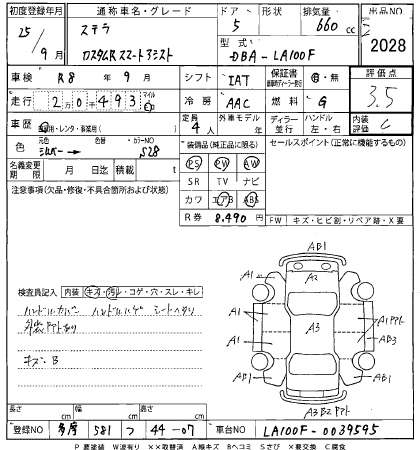 初度登録年月 通称車名・グレード ドア 形状 排気量 出品NO
25/9月 ステラ 5 660 cc 2028
カスタムR スマートアシスト 型式 DBA-LA100F
車検 R8年9月 シフト IAT 保証書 有・無 評価点
走行 2万0千493 マイル 冷房 AAC 燃料 G 3.5
車歴 自家用・レンタ・事業用( ) 定員 4人 外車モデル 年 ディーラー 並行 ハンドル 左・右 内装評価 C
色 元色 シルバー → 色替 カラーNO S28
装備品(純正品に限る) セールスポイント(正常に機能するもの)
名義変更期限 月 日迄 積載 t
PS PW AW
SR TV ナビ
カワ エアB ABS
R券 8,490円
FW キズ・ヒビ割・リペア跡・X要
注意事項(欠品・修復・不具合箇所および状態)
検査員記入 内装 キズ・汚レ・コゲ・穴・スレ・キレ
ハンドルカバー ハンドルハゲ シートヘタリ
外装PアトあU
キズB
AB1
A1 A2 AB1
A1 A3 A1 Pアト
A1 AB3
AB1 AB1
A3 B2 Pアト
長さ cm 幅 cm 高さ cm
登録NO 多摩 581 つ 44-07 車台NO LA100F-0039595
P要塗装 W波有り ××取替済 A線キズ Bヘコミ Sさび ×要交換 C腐食